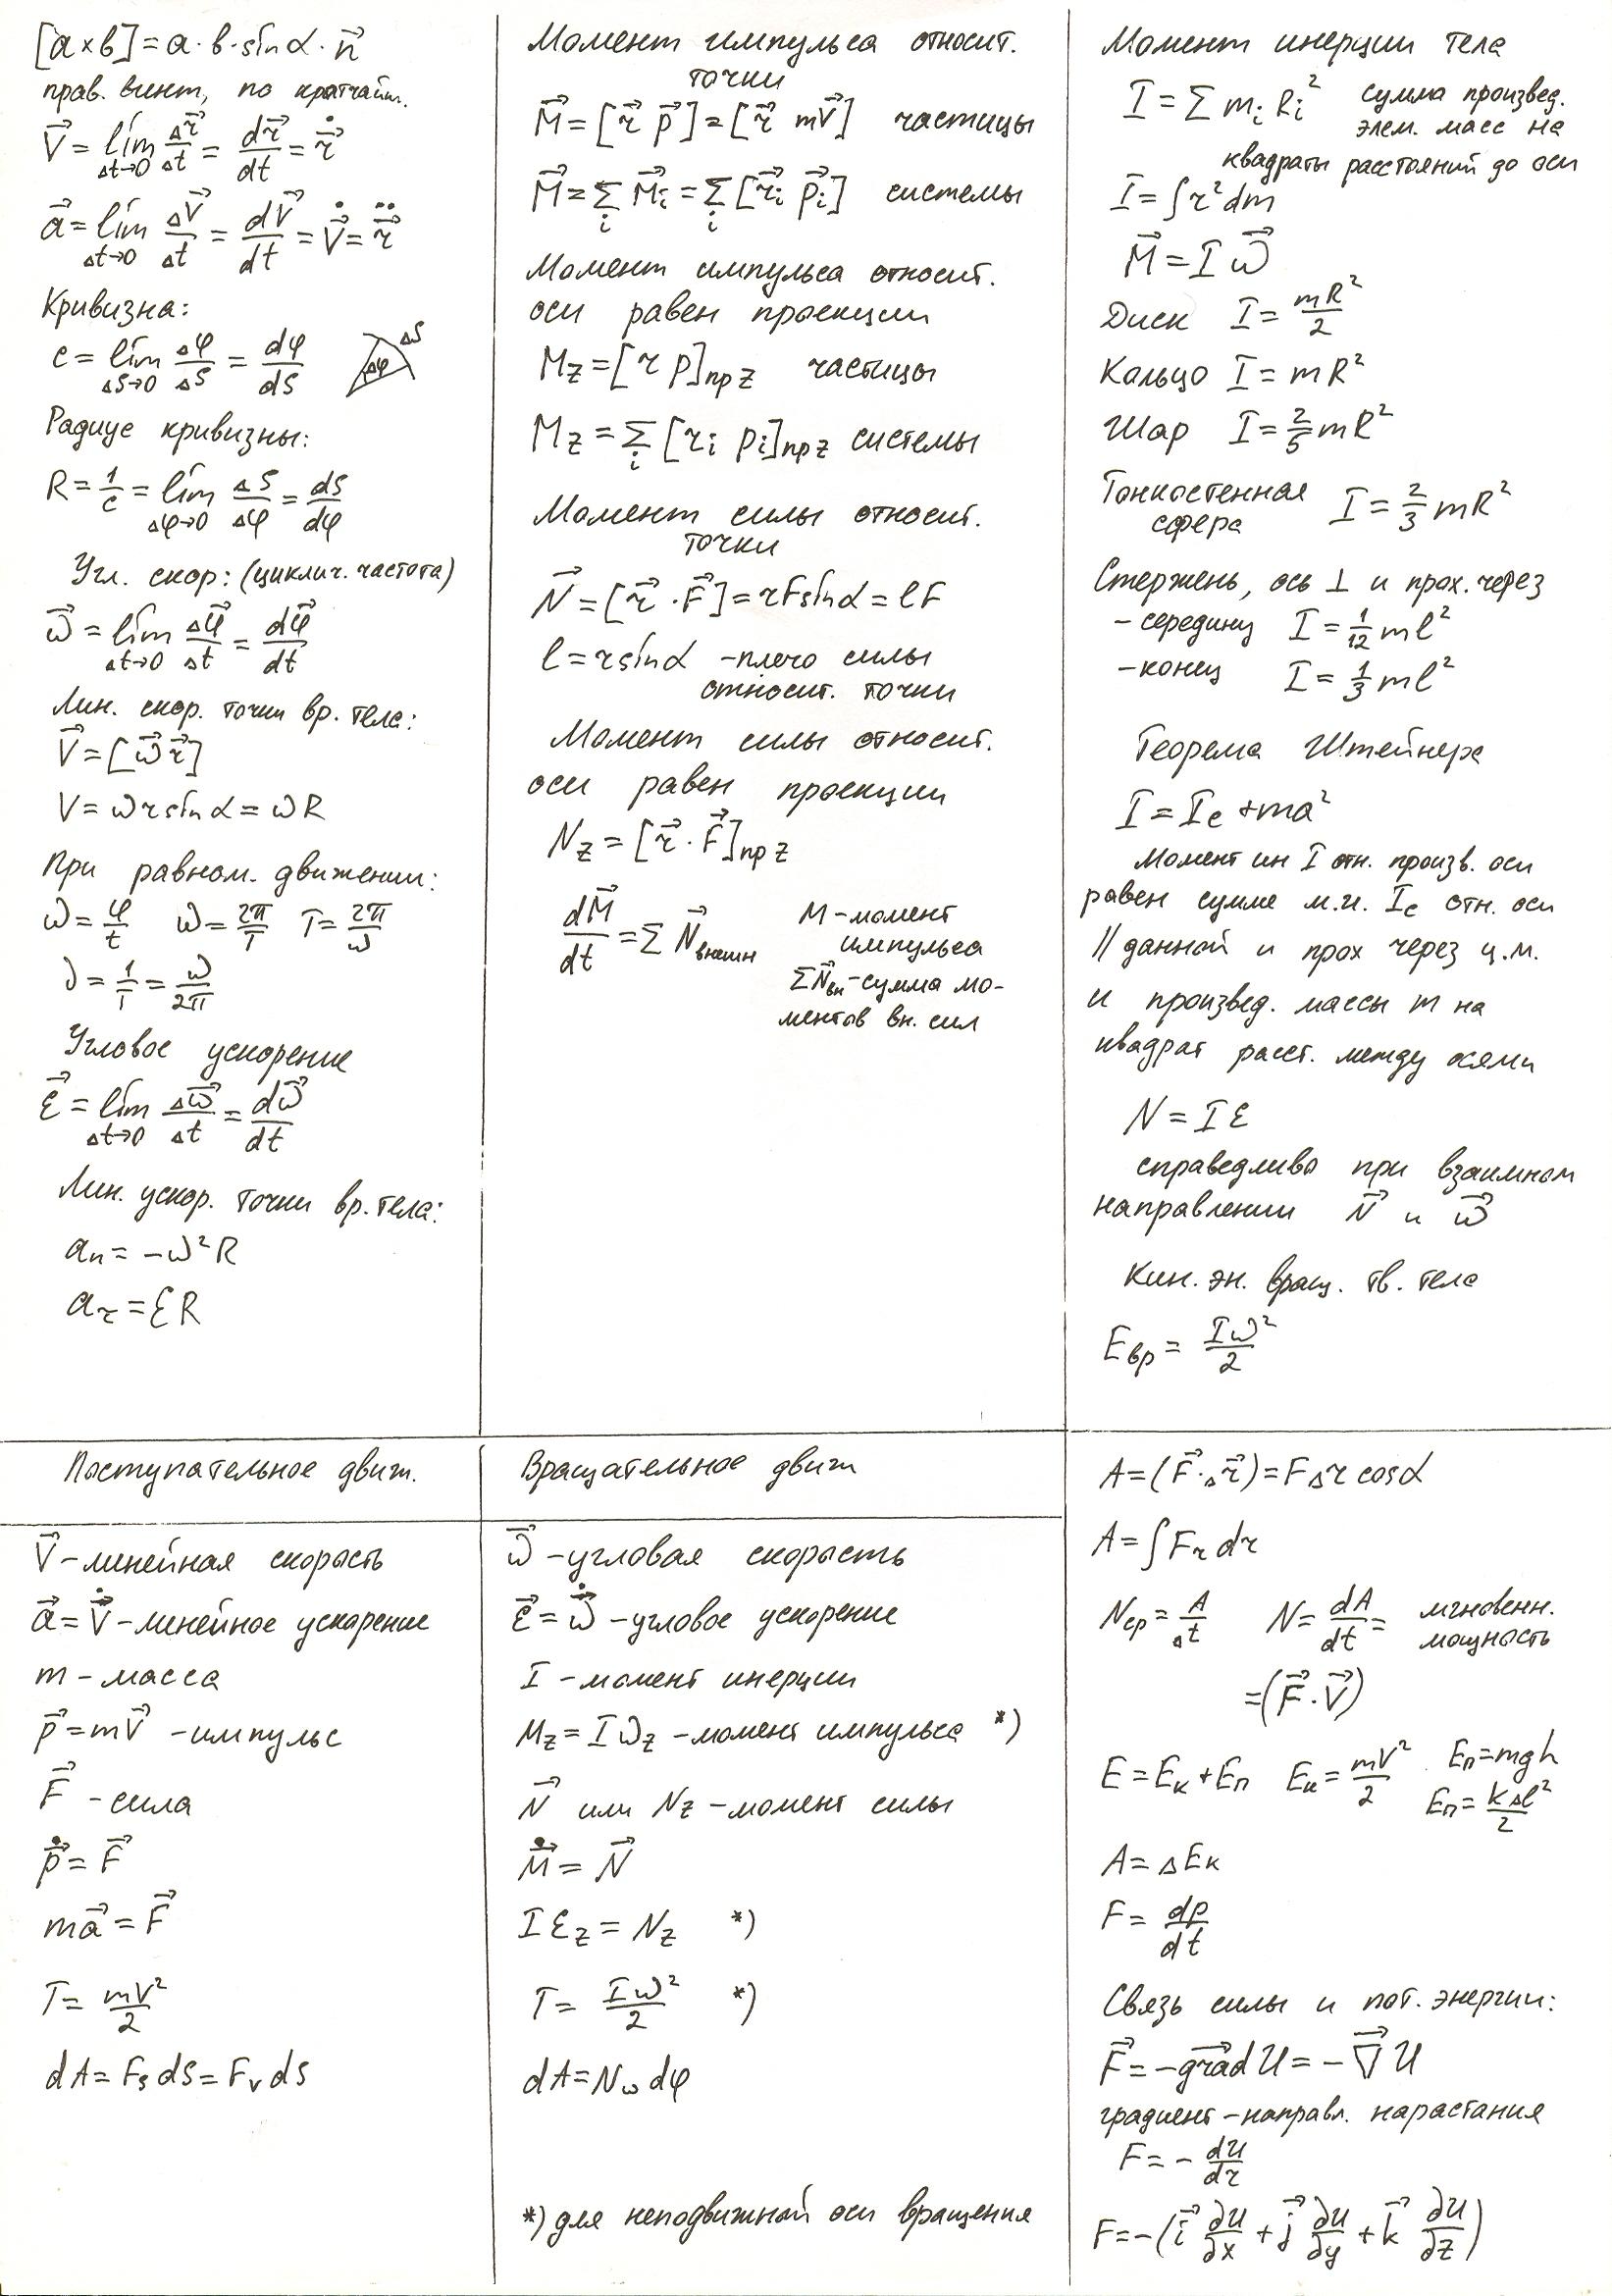 [a×b]=a·b·sinα·n⃗
прав. винт, по кратчайш.
V⃗ = lim Δt→0 Δr⃗/Δt = dr⃗/dt = ṙ⃗
a⃗ = lim Δt→0 ΔV⃗/Δt = dV⃗/dt = V̇⃗ = r̈⃗
Кривизна:
c = lim ΔS→0 Δφ/ΔS = dφ/dS Δφ ΔS
Радиус кривизны:
R = 1/c = lim Δφ→0 ΔS/Δφ = dS/dφ
Угл. скор: (циклич. частота)
ω⃗ = lim Δt→0 Δφ⃗/Δt = dφ⃗/dt
Лин. скор. точки вр. тела:
V⃗ = [ω⃗ r⃗]
V = ω r sinα = ωR
При равном. движении:
ω = φ/t ω = 2π/T T = 2π/ω
ν = 1/T = ω/2π
Угловое ускорение
ε⃗ = lim Δt→0 Δω⃗/Δt = dω⃗/dt
Лин. ускор. точки вр. тела:
aₙ = −ω²R
a_τ = εR
Момент импульса относит.
точки
M⃗ = [r⃗ p⃗] = [r⃗ mV⃗] частицы
M⃗ = Σᵢ M⃗ᵢ = Σᵢ [r⃗ᵢ p⃗ᵢ] системы
Момент импульса относит.
оси равен проекции
M_z = [r p]пр z частицы
M_z = Σᵢ [rᵢ pᵢ]пр z системы
Момент силы относит.
точки
N⃗ = [r⃗ · F⃗] = rFsinα = lF
l = r sinα – плечо силы
относит. точки
Момент силы относит.
оси равен проекции
N_z = [r⃗ · F⃗]пр z
dM⃗/dt = Σ N⃗внешн
M – момент
импульса
ΣN⃗вн – сумма мо-
ментов вн. сил
Момент инерции тела
I = Σ mᵢ Rᵢ² сумма произвед.
элем. масс на
квадраты расстояний до оси
I = ∫r²dm
M⃗ = I ω⃗
Диск I = mR²/2
Кольцо I = mR²
Шар I = 2/5 mR²
Тонкостенная
сфера I = 2/3 mR²
Стержень, ось ⊥ и прох. через
– середину I = 1/12 ml²
– конец I = 1/3 ml²
Теорема Штейнера
I = I_c + ma²
Момент ин I отн. произв. оси
равен сумме м.и. I_c отн. оси
// данной и прох через ц.м.
и произвед. массы m на
квадрат расст. между осями
N = Iε
справедливо при взаимном
направлении N⃗ и ω⃗
Кин. эн. вращ. тв. тела
Eвр = Iω²/2
Поступательное движ.
V⃗ – линейная скорость
a⃗ = V̇⃗ – линейное ускорение
m – масса
p⃗ = mV⃗ – импульс
F⃗ – сила
ṗ⃗ = F⃗
ma⃗ = F⃗
T = mV²/2
dA = F_s dS = F_v dS
Вращательное движ
ω⃗ – угловая скорость
ε⃗ = ω̇⃗ – угловое ускорение
I – момент инерции
M_z = I ω_z – момент импульса *)
N⃗ или N_z – момент силы
Ṁ⃗ = N⃗
I ε_z = N_z *)
T = Iω²/2 *)
dA = N_ω dφ
*) для неподвижной оси вращения
A = (F⃗ · Δr⃗) = FΔr cosα
A = ∫F_r dr
Nср = A/Δt N = dA/dt = мгновенн.
мощность
= (F⃗ · V⃗)
E = Eк + Eп Eк = mV²/2 Eп = mgh
Eп = kΔl²/2
A = ΔEк
F = dp/dt
Связь силы и пот. энергии:
F⃗ = −grad U = −∇⃗ U
градиент – направл. нарастания
F = − dU/dr
F = −(i⃗ ∂U/∂x + j⃗ ∂U/∂y + k⃗ ∂U/∂z)